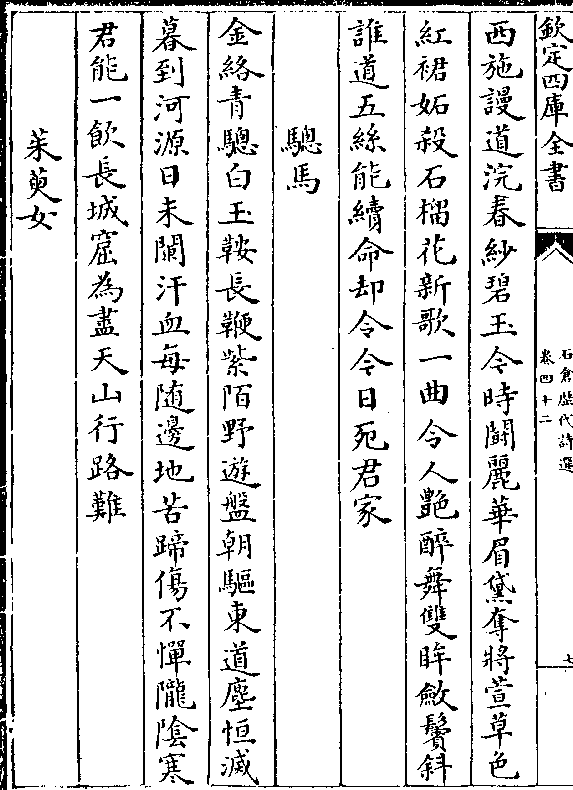 欽定四庫全書
石倉歷代詩選
卷四十二
七
西施謾道浣春紗碧玉今時鬬麗華眉黛奪將萱草色
紅裙妬殺石榴花新歌一曲令人艷醉舞雙眸斂鬢斜
誰道五絲能續命却令今日死君家
驄馬
金絡青驄白玉鞍長鞭紫陌野遊盤朝驅東道塵恒滅
暮到河源日未闌汗血每隨邊地苦蹄傷不憚隴陰寒
君能一飲長城窟為盡天山行路難
茱萸女